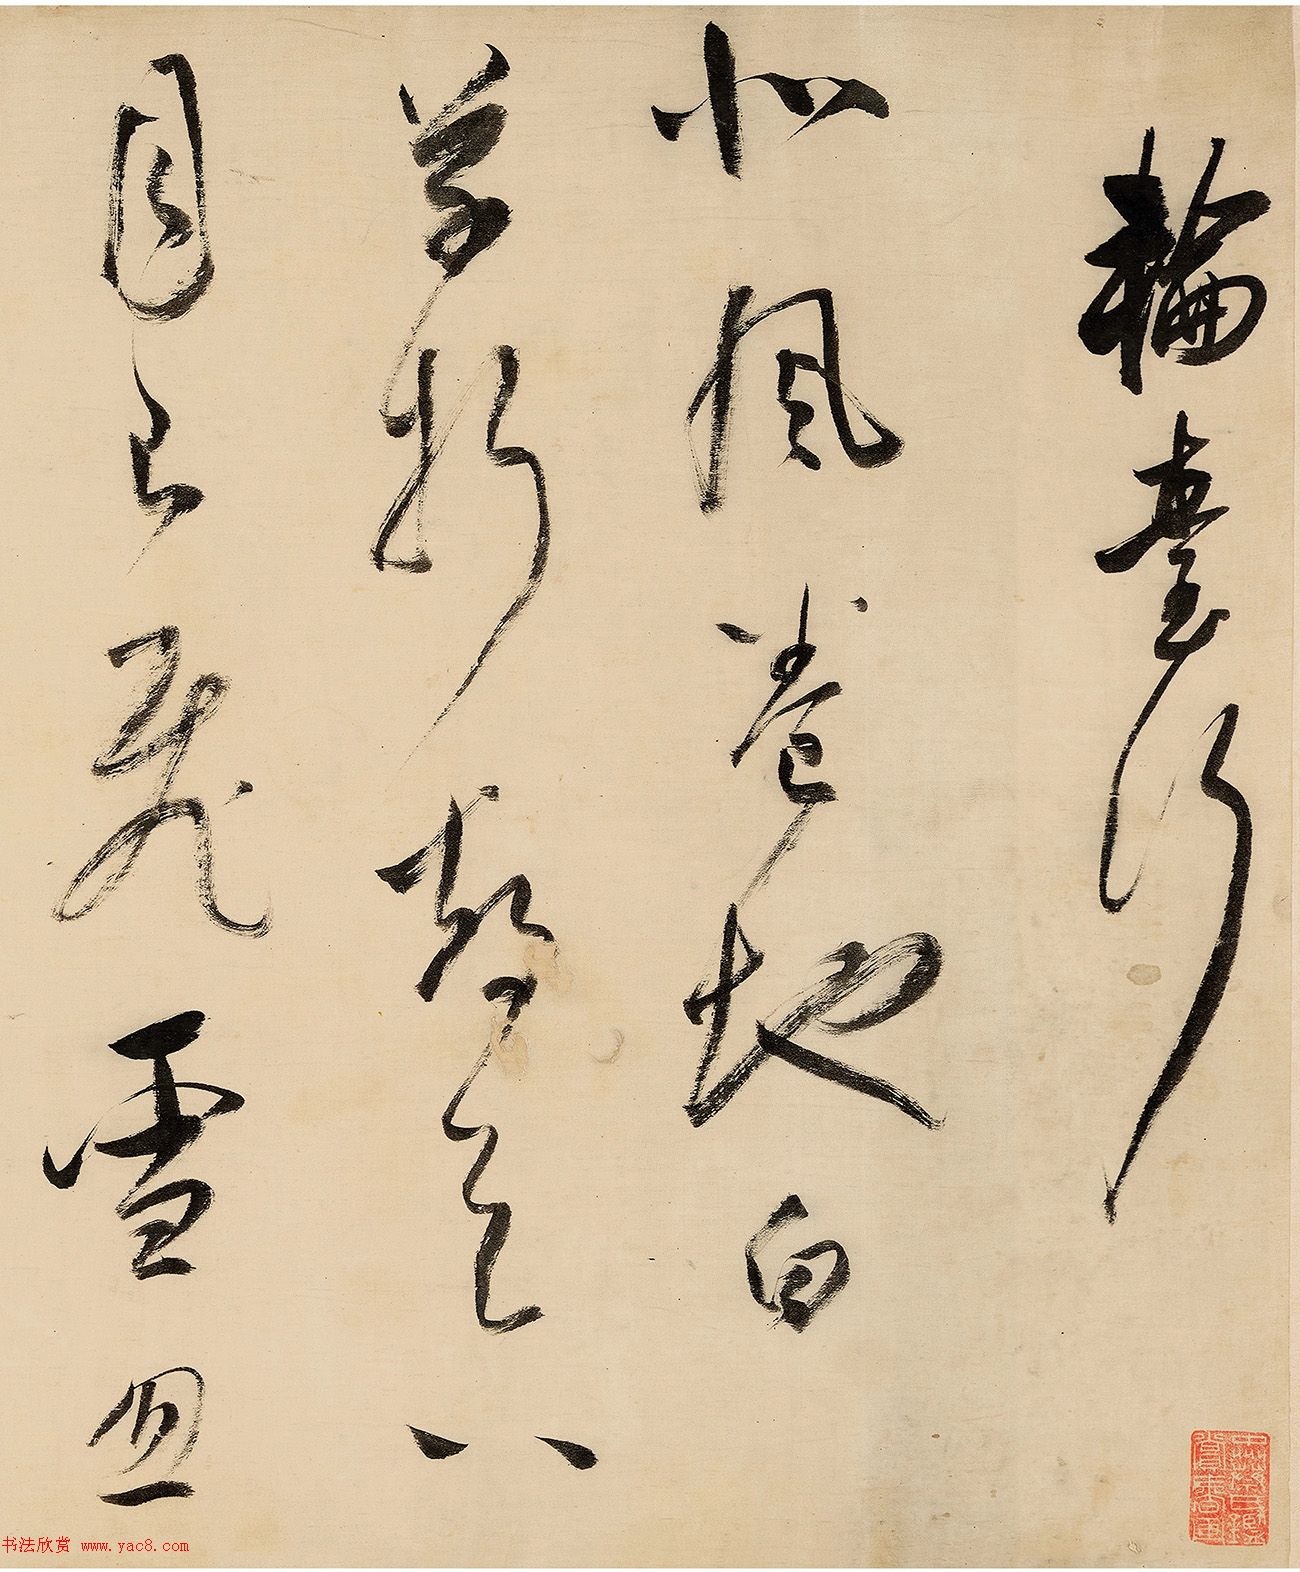 輪臺行
北風卷地白
草折胡天八
月即飛雪忽
书法欣赏 www.yac8.com